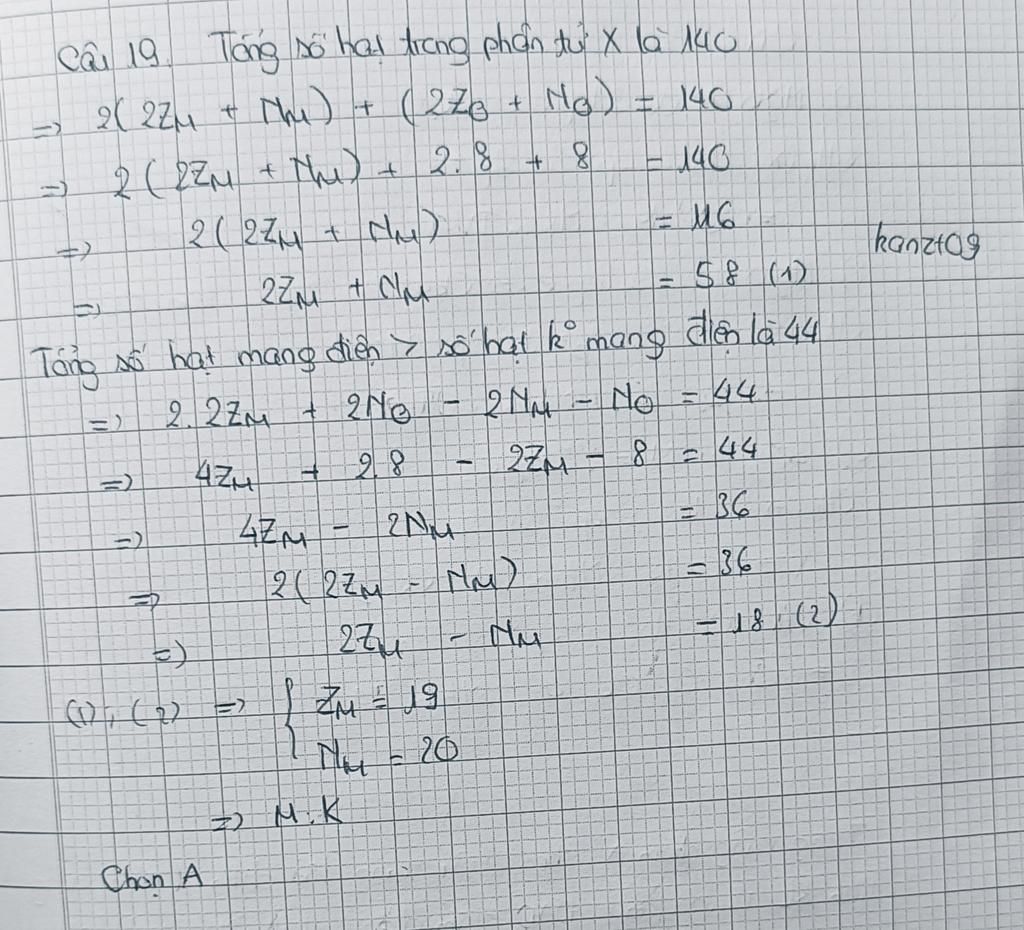 Câu 19. Tổng số hạt trong phân tử X là 140
=> 2(2ZM + NM) + (2ZO + NO) = 140
=> 2(2ZM + NM) + 2.8 + 8 = 140
=> 2(2ZM + NM) = 116
kanzt09
=> 2ZM + NM = 58 (1)
Tổng số hạt mang điện > số hạt k° mang điện là 44
=> 2.2ZM + 2NO - 2NM - NO = 44
=> 4ZM + 2.8 - 2ZM - 8 = 44
=> 4ZM - 2NM = 36
=> 2(2ZM - NM) = 36
=> 2ZM - NM = 18 (2)
(1), (2) => { ZM = 19
NM = 20
=> M: K
Chọn A